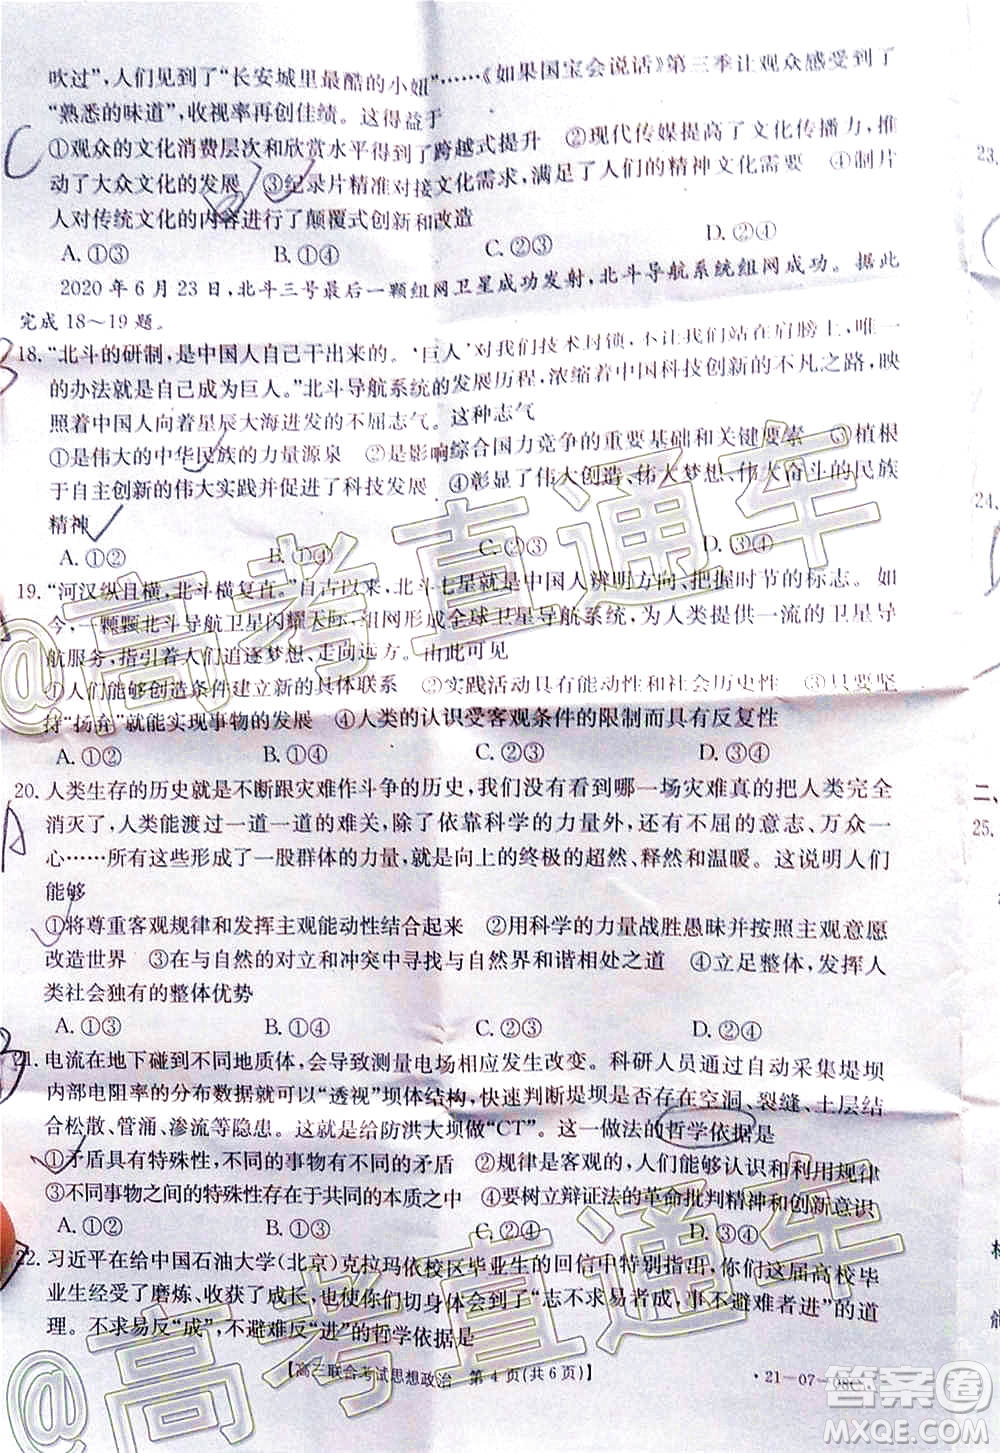 吹过”,人们见到了“长安城里最酷的小妞”……《如果国宝会说话》第三季让观众感受到了
“熟悉的味道”,收视率再创佳绩。这得益于
①观众的文化消费层次和欣赏水平得到了跨越式提升　②现代传媒提高了文化传播力,推
动了大众文化的发展　③纪录片精准对接文化需求,满足了人们的精神文化需要　④制片
人对传统文化的内容进行了颠覆式创新和改造
A.①③　B.①④　C.②③　D.②④
2020年6月23日,北斗三号最后一颗组网卫星成功发射,北斗导航系统组网成功。据此
完成18～19题。
18.“北斗的研制,是中国人自己干出来的。‘巨人’对我们技术封锁,不让我们站在肩膀上,唯一
的办法就是自己成为巨人。”北斗导航系统的发展历程,浓缩着中国科技创新的不凡之路,映
照着中国人向着星辰大海进发的不屈志气。这种志气
①是伟大的中华民族的力量源泉　②是影响综合国力竞争的重要基础和关键要素　③植根
于自主创新的伟大实践并促进了科技发展　④彰显了伟大创造、伟大梦想、伟大奋斗的民族
精神
A.①②　B.①④　C.②③　D.③④
19.“河汉纵且横,北斗横复直。”自古以来,北斗七星就是中国人辨明方向、把握时节的标志。如
今,一颗颗北斗导航卫星闪耀天际,组网形成全球卫星导航系统,为人类提供一流的卫星导
航服务,指引着人们追逐梦想、走向远方。由此可见
①人们能够创造条件建立新的具体联系　②实践活动具有能动性和社会历史性　③只要坚
持“扬弃”就能实现事物的发展　④人类的认识受客观条件的限制而具有反复性
A.①②　B.①④　C.②③　D.③④
20.人类生存的历史就是不断跟灾难作斗争的历史,至今没有看到哪一场灾难真的把人类完全
消灭了,人类能渡过一道一道的难关,除了依靠科学的力量外,还有不屈的意志、万众一
心……所有这些形成了一股群体的力量,就是向上的终极的超然、释然和温暖。这说明人们
能够
①将尊重客观规律和发挥主观能动性结合起来　②用科学的力量战胜愚昧并按主观意愿
改造世界　③在与自然的对立和冲突中寻找与自然和谐相处之道　④立足整体,发挥人
类社会独有的整体优势
A.①③　B.①④　C.②③　D.②④
21.电流在地下碰到不同地质体,会导致测量电场相应发生改变。科研人员通过自动采集堤坝
内部电阻率的分布数据就可以“透视”坝体结构,快速判断堤坝是否存在空洞、裂缝、土层结
合松散、管涌、渗流等隐患。这就是给防洪大坝做“CT”。这一做法的哲学依据是
①矛盾具有特殊性,不同的事物有不同的矛盾　②规律是客观的,人们能够认识和利用规律
③不同事物之间的特殊性存在于共性之中　④要树立辩证法的革命批判精神和创新意识
A.①②　B.①③　C.②④　D.③④
22.习近平在给中国石油大学(北京)克拉玛依校区毕业生的回信中特别指出,你们这届高校毕
业生经受了磨炼、收获了成长,也使你们切身体会到了“志不求易者成,事不避难者进”的道
理。不求易反“成”,不避难反“进”的哲学依据是
【高三联合考试思想政治　第4页(共6页)】
·21-07-08C·
C
B
A
B
23.
24.
二、
25.
@高考直通车
@高考直通车
答案圈
MXQE.COM